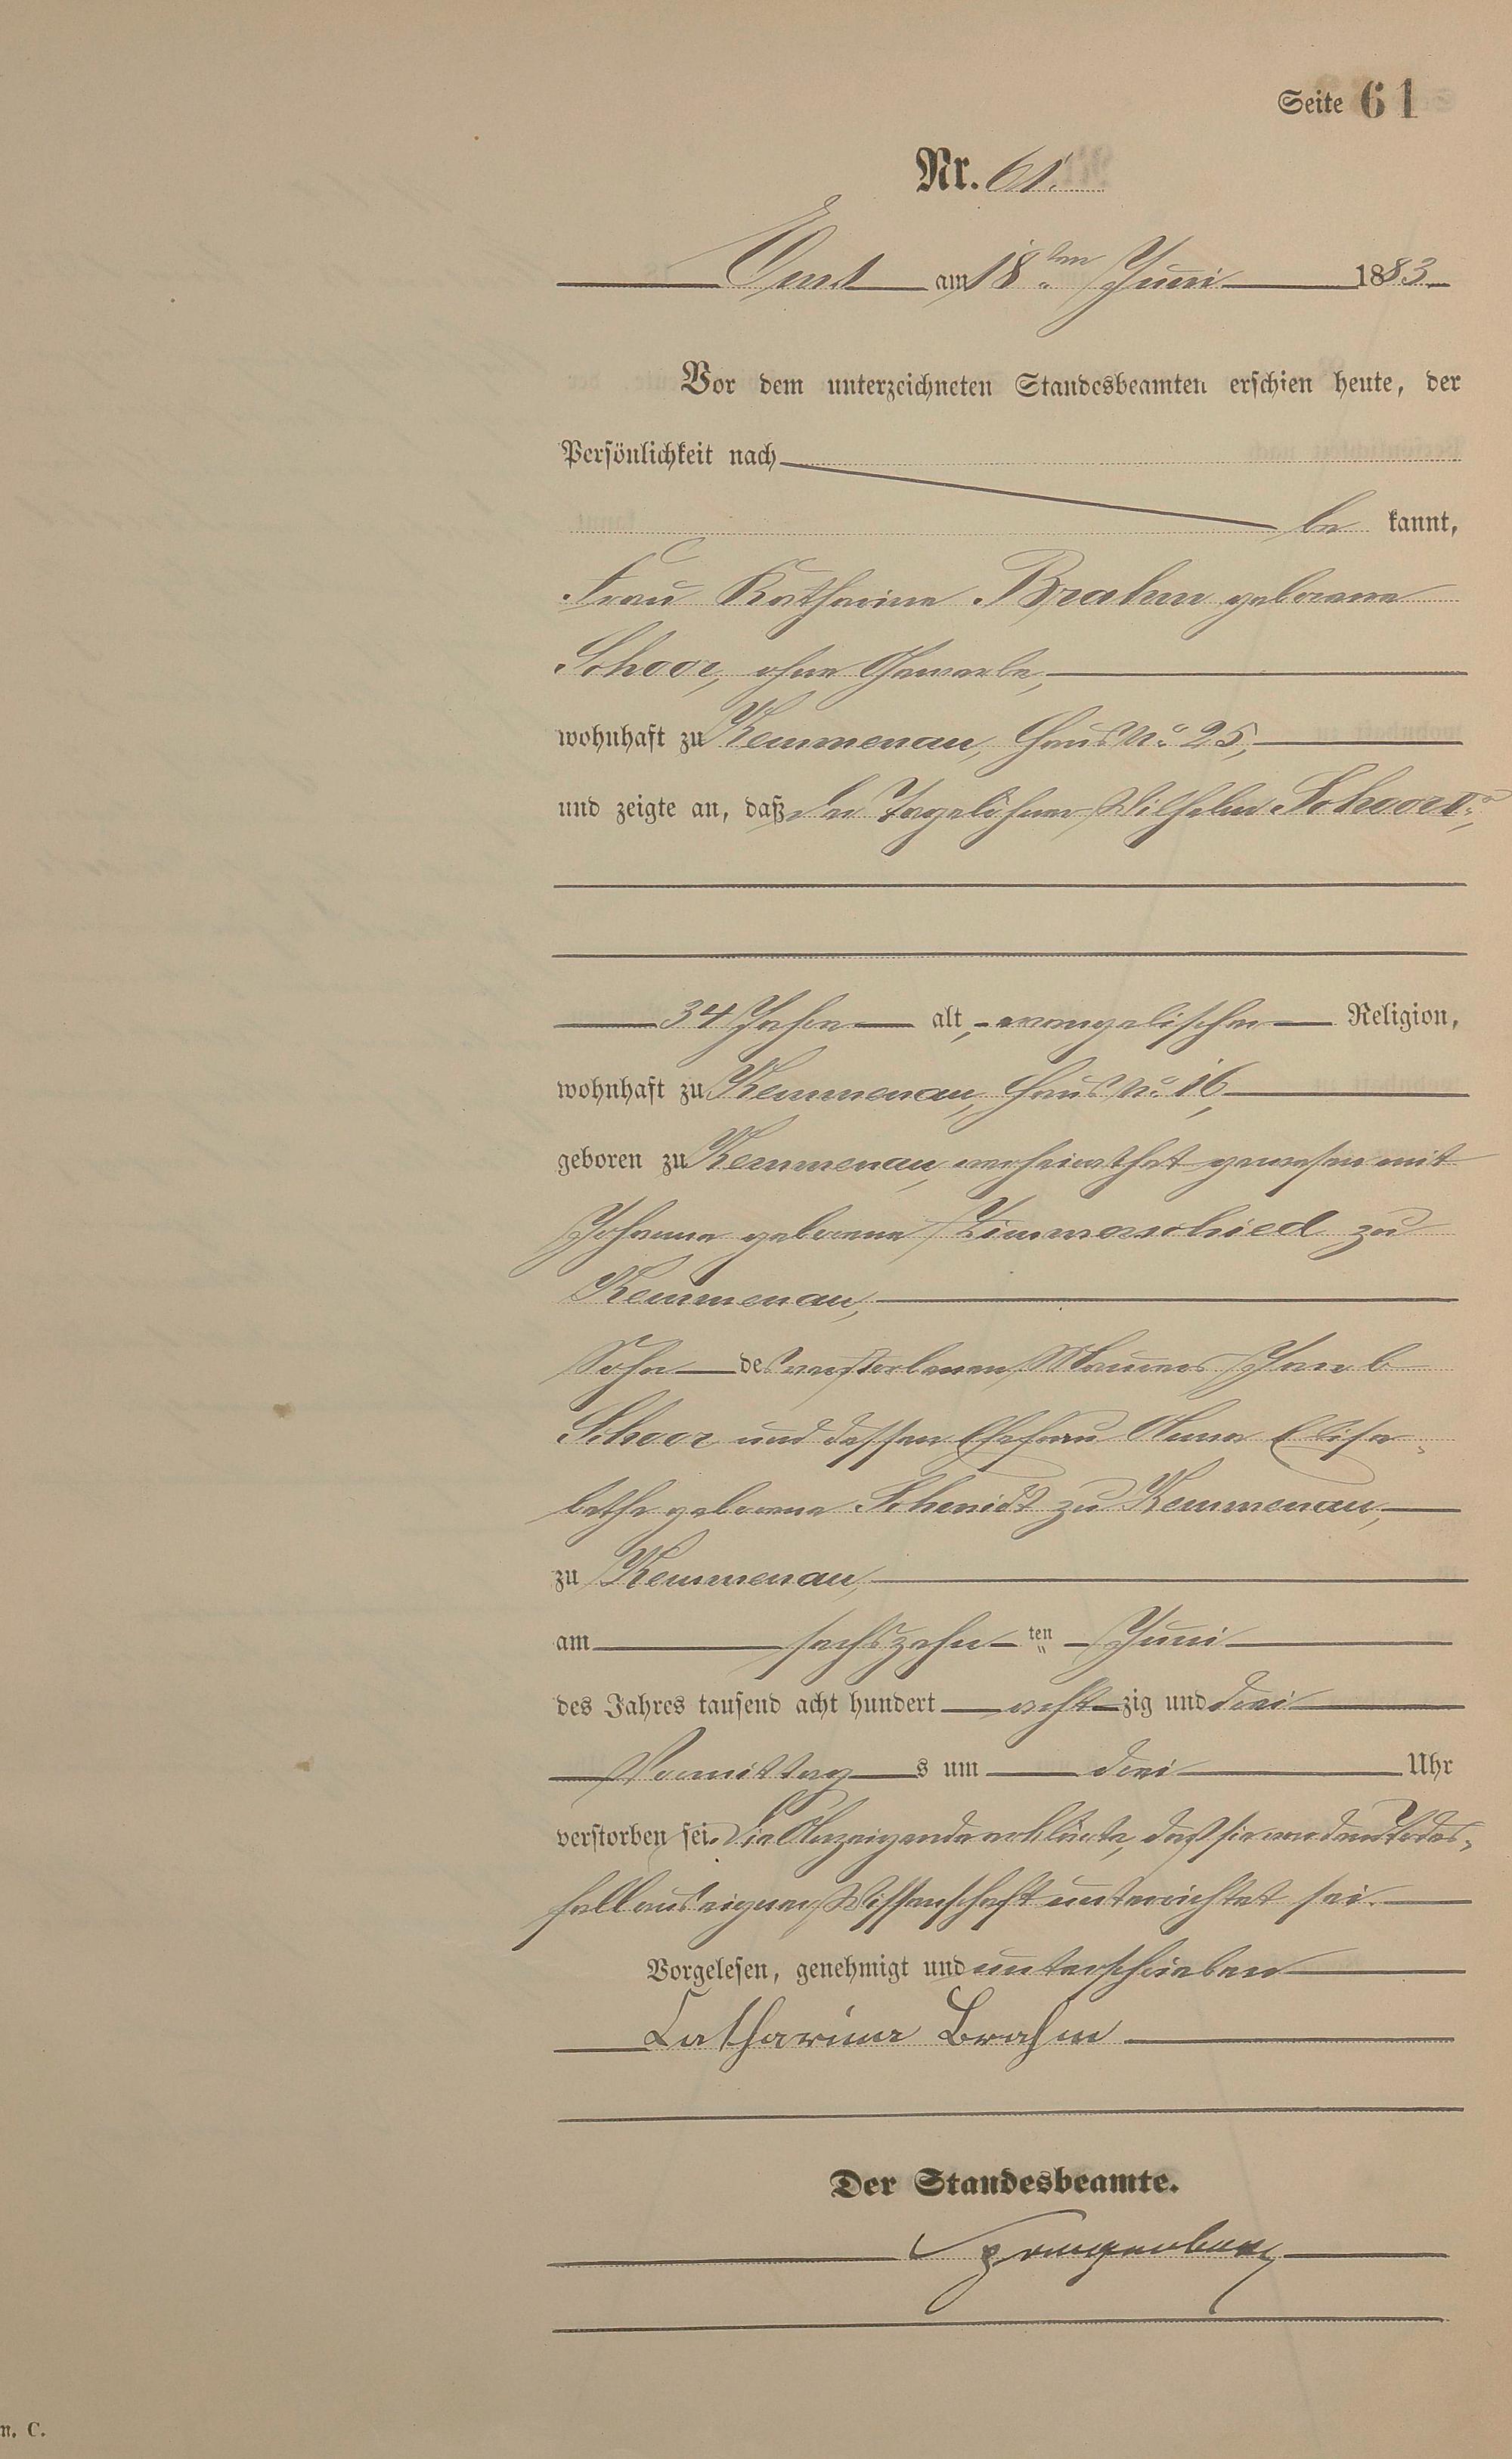 Seite 61
Nr. 61.
Ems am 18ten Juni 1883
Vor dem unterzeichneten Standesbeamten erschien heute, der
Persönlichkeit nach
be kannt,
Frau Katharine Brahm geborene
Schoor, ohne Gewerbe,
wohnhaft zu Kemmenau, Haus No 25,
und zeigte an, daß der Tagelöhner Wilhelm Schoor
34 Jahre alt, evangelischer Religion,
wohnhaft zu Kemmenau, Haus No 16,
geboren zu Kemmenau, verheirathet gewesen mit
Johanna geborene Zimmerschied zu
Kemmenau,
Sohn des verstorbenen Maurers Jacob
Schoor und dessen Ehefrau Anna Elisa-
betha geborene Schmidt zu Kemmenau,
zu Kemmenau,
am sechszehnten Juni
des Jahres tausend acht hundert achtzig und drei
Vormittags um drei Uhr
verstorben sei. Die Anzeigende erklärte, daß sie von dem Todes-
fall aus eigner Wissenschaft unterrichtet sei.
Vorgelesen, genehmigt und unterschrieben
Catharina Brahm
Der Standesbeamte.
n. C.